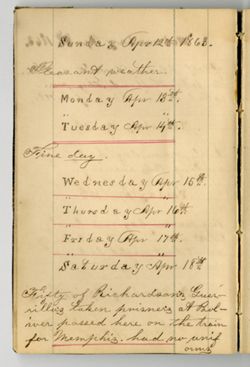 Sunday Apr 12th 1863.
Pleasant weather.
Monday Apr 13th.
"
Tuesday Apr 14th.
Fine day.
Wednesday Apr 15th.
" "
Thursday Apr 16th
" "
Friday Apr 17th.
" "
Saturday Apr 18th
Fifty of Richardsons Guer-
rillis taken prisners at Bol-
iver passed here on the train
for Memphis. had no unif
orms